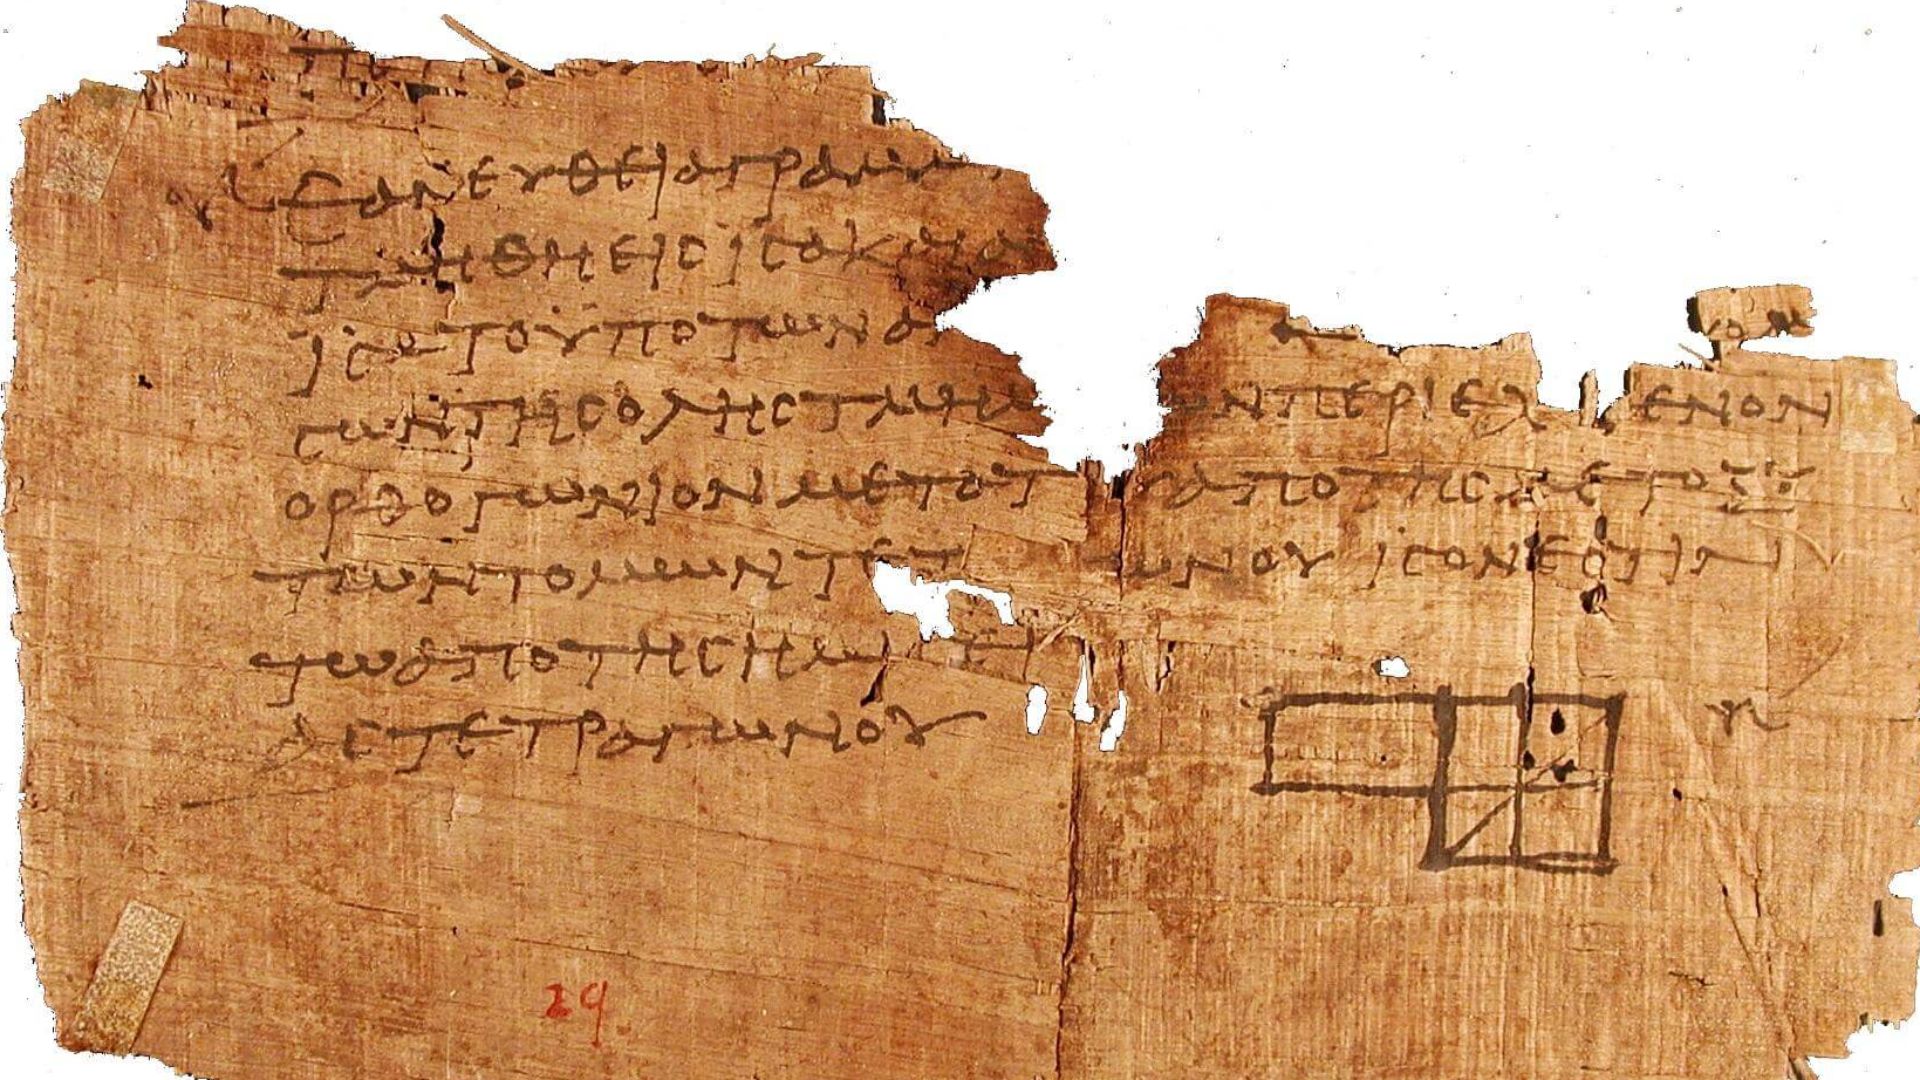 ΕΑΝ ΕΥΘΕΙΑ ΓΡΑΜΜ
ΤΜΗΘΗ ΕΙΣ ΙΣΑ ΚΑΙ Α
ΙΣΑ ΤΟ ΥΠΟ ΤΩΝ ΑΝ
ΣΩΝ ΤΗΣ ΟΛΗΣ ΤΜΗΜ ΩΝ ΠΕΡΙΕΧ ΜΕΝΟΝ
ΟΡΘΟΓΩΝΙΟΝ ΜΕΤΑ Τ ΑΠΟ ΤΗΣ ΜΕΤΟΞΥ
ΤΩΝ ΤΟΜΩΝ ΤΕΤ ΩΝΟΥ ΙΣΟΝ ΕΣΤΙΝ
ΤΩ ΑΠΟ ΤΗΣ ΗΜΙ
ΑΣ ΤΕΤΡΑΓΩΝΟΥ
29